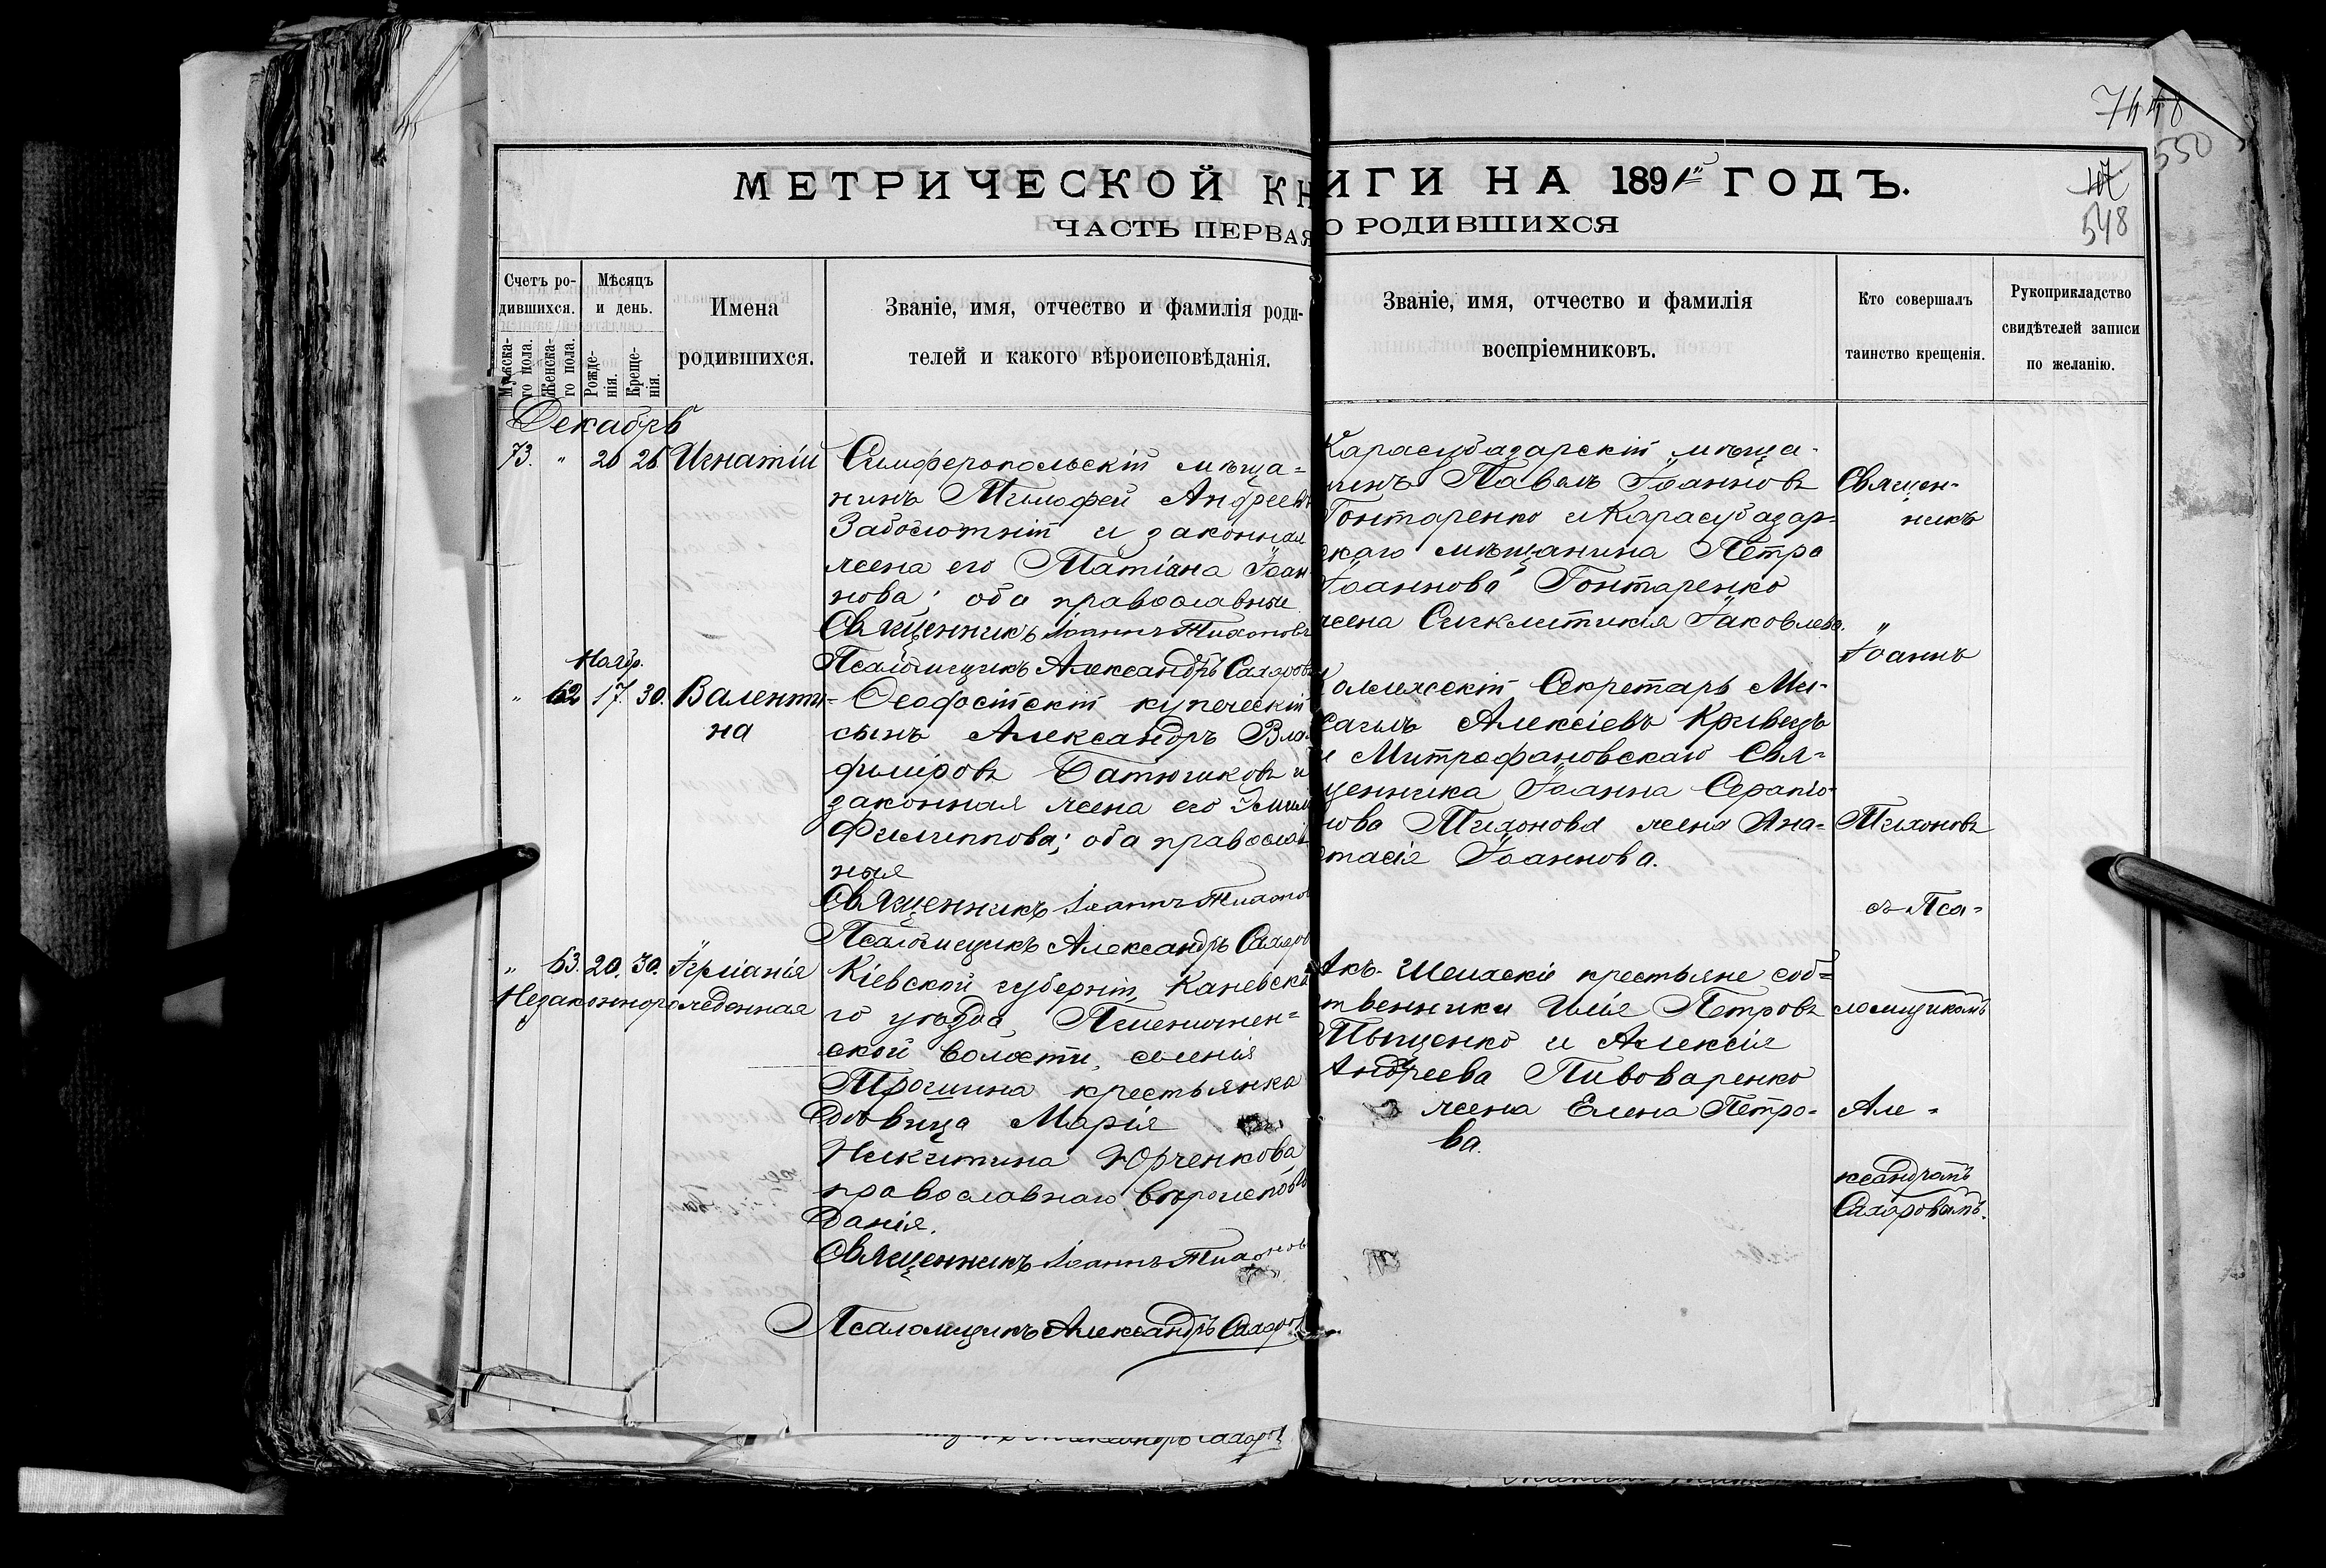 7448
550
МЕТРИЧЕСКОЙ КНИГИ НА 1891й ГОДЪ.
107
548
ЧАСТЬ ПЕРВАЯ О РОДИВШИХСЯ
Счетъ ро-
дившихся.
Мужска-
го пола.
Женска-
го пола.
Мѣсяцъ
и день.
Рожде-
нія.
Креще-
нія.
Имена
родившихся.
Званіе, имя, отчество и фамилія роди-
телей и какого вѣроисповѣданія.
Званіе, имя, отчество и фамилія
воспріемниковъ.
Кто совершалъ
таинство крещенія.
Рукоприкладство
свидѣтелей записи
по желанію.
Декабрь
73. " 20 26 Игнатій
Симферопольскій мѣща=
нинъ Тимофей Андреевъ
Заболотній и законная
жена его Татіана Іоан
нова; оба православные
Священникъ Іоаннъ Тихоновъ
Псаломщикъ Александръ Сахаровъ
Карасубазарскій мѣща-
нинъ Павелъ Іоанновъ
Гонтаренко и Карасубазар=
скаго мѣщанина Петра
Іоаннова Гонтаренко
жена Синклитикія Іаковлева.
Ноябр.
" 62 17. 30. Валенти-
на
Ѳеодосійскій купеческій
сынъ Александръ Вла
диміровъ Батюшковъ и
законная жена его
Филиппова; оба православ
ныя
Священникъ Іоаннъ Тихонов
Псаломщикъ Александръ Сахаров
Коллежскій Секретарь Ми-
хаилъ Алексіевъ Кривецъ
и Митрофановскаго Свя=
щенника Іоанна Серапіо-
нова Тихонова жена Ана=
стасія Іоаннова.
" 63. 20. 30. Ерміанія
Незаконнорожденная
Кіевской губерніи, Каневска
го уѣзда, Пшенични-
ской волости, селенія
Трошина крестьянка
вдовица Марія
Никитина Юрченкова
православнаго вѣроисповѣ
данія.
Священникъ Іоаннъ Тихоновъ
Псаломщикъ Александръ Сахаровъ
Акъ-Шеихскіе крестьяне соб=
ственники Илія Петровъ
и Алексія
Андреева Пивоваренко
жена Елена Петро-
ва.
Священ-
никъ
"
Іоаннъ
Тихоновъ
съ Пса=
ломщикомъ
Але-
ксандромъ
Сахаровымъ.